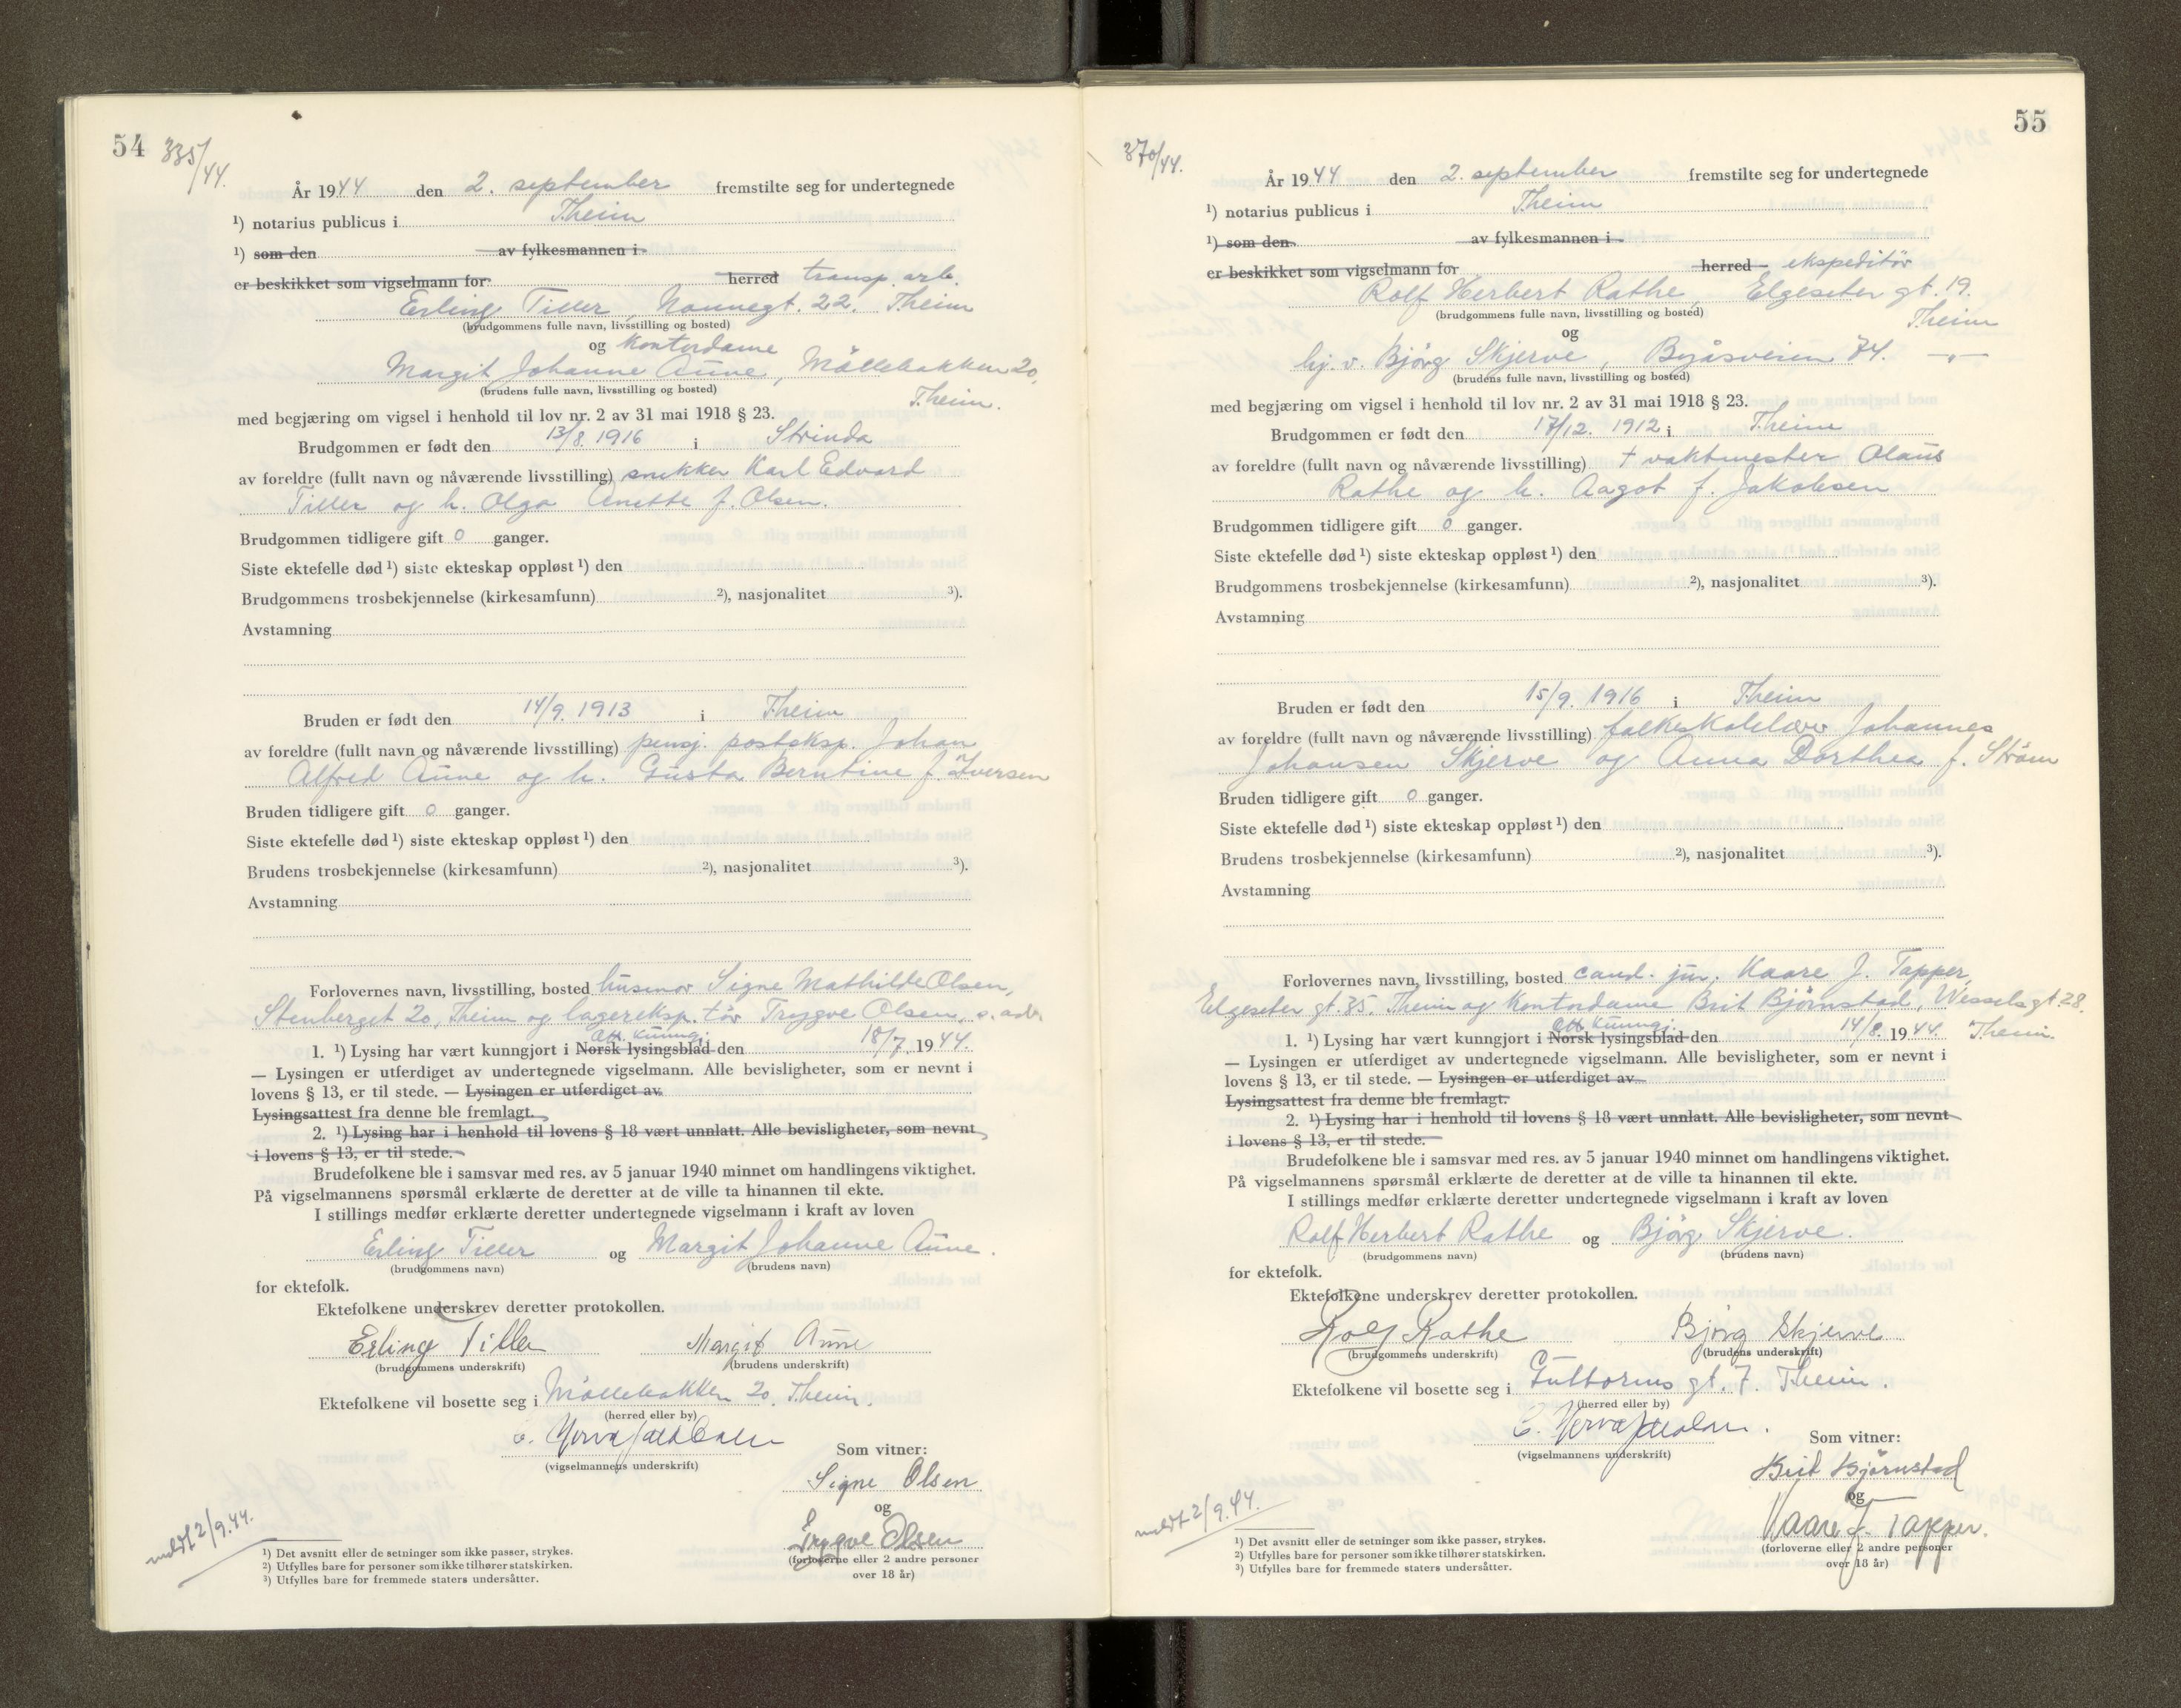 54 335/44.
År 1944 den 2. september fremstilte seg for undertegnede
¹) notarius publicus i T.heim
¹) som den av fylkesmannen i
er beskikket som vigselmann for herred transp. arb.
Erling Tiller, Nonnegt. 22. T.heim
(brudgommens fulle navn, livsstilling og bosted)
og kontordame
Margit Johanne Aune, Möllebakken 20,
(brudens fulle navn, livsstilling og bosted) T.heim.
med begjæring om vigsel i henhold til lov nr. 2 av 31 mai 1918 § 23.
Brudgommen er født den 13/8. 1916 i Strinda
av foreldre (fullt navn og nåværende livsstilling) snekker Karl Edvard
Tiller og h. Olga Anette f. Olsen.
Brudgommen tidligere gift 0 ganger.
Siste ektefelle død ¹) siste ekteskap oppløst ¹) den
Brudgommens trosbekjennelse (kirkesamfunn) ²), nasjonalitet ³).
Avstamning
Bruden er født den 14/9. 1913 i T.heim
av foreldre (fullt navn og nåværende livsstilling) pensj. posteksp. Johan
Alfred Aune og h. Gusta Berntine f. Iversen
Bruden tidligere gift 0 ganger.
Siste ektefelle død ¹) siste ekteskap oppløst ¹) den
Brudens trosbekjennelse (kirkesamfunn) ²), nasjonalitet ³).
Avstamning
Forlovernes navn, livsstilling, bosted husmor Signe Mathilde Olsen,
Stenberget 20, T.heim og lagereksp.tör Trygve Olsen, s. adr.
Off. kunngj.
1. ¹) Lysing har vært kunngjort i Norsk lysingsblad den 18/7. 1944.
— Lysingen er utferdiget av undertegnede vigselmann. Alle bevisligheter, som er nevnt i
lovens § 13, er til stede. — Lysingen er utferdiget av
Lysingsattest fra denne ble fremlagt.
2. ¹) Lysing har i henhold til lovens § 18 vært unnlatt. Alle bevisligheter, som nevnt
i lovens § 13, er til stede.
Brudefolkene ble i samsvar med res. av 5 januar 1940 minnet om handlingens viktighet.
På vigselmannens spørsmål erklærte de deretter at de ville ta hinannen til ekte.
I stillings medfør erklærte deretter undertegnede vigselmann i kraft av loven
Erling Tiller og Margit Johanne Aune.
(brudgommens navn) (brudens navn)
for ektefolk.
Ektefolkene underskrev deretter protokollen.
Erling Tiller Margit Aune
(brudgommens underskrift) (brudens underskrift)
Ektefolkene vil bosette seg i Möllebakken 20, T.heim.
(herred eller by)
(vigselmannens underskrift)
Som vitner:
Signe Olsen
og
Trygve Olsen
(forloverne eller 2 andre personer
over 18 år)
meldt 2/9.44.
¹) Det avsnitt eller de setninger som ikke passer, strykes.
²) Utfylles bare for personer som ikke tilhører statskirken.
³) Utfylles bare for fremmede staters undersåtter.
55
370/44.
År 1944 den 2. september fremstilte seg for undertegnede
¹) notarius publicus i T.heim
¹) som den av fylkesmannen i
er beskikket som vigselmann for herred ekspeditör
Rolf Herbert Rathe, Elgeseter gt. 19.
(brudgommens fulle navn, livsstilling og bosted) T.heim
og
hj. v. Björg Skjerve, Byåsveien 74. —"—
(brudens fulle navn, livsstilling og bosted)
med begjæring om vigsel i henhold til lov nr. 2 av 31 mai 1918 § 23.
Brudgommen er født den 17/12. 1912 i T.heim
av foreldre (fullt navn og nåværende livsstilling) † vaktmester Olaus
Rathe og h. Aagot f. Jakobsen
Brudgommen tidligere gift 0 ganger.
Siste ektefelle død ¹) siste ekteskap oppløst ¹) den
Brudgommens trosbekjennelse (kirkesamfunn) ²), nasjonalitet ³).
Avstamning
Bruden er født den 15/9. 1916 i T.heim
av foreldre (fullt navn og nåværende livsstilling) folkeskolelærer Johannes
Johansen Skjerve og Anna Dorthea f. Ström
Bruden tidligere gift 0 ganger.
Siste ektefelle død ¹) siste ekteskap oppløst ¹) den
Brudens trosbekjennelse (kirkesamfunn) ²), nasjonalitet ³).
Avstamning
Forlovernes navn, livsstilling, bosted cand. jur. Kaare J. Tapper,
Elgeseter gt. 35. T.heim og kontordame Brit Björnstad, Wesselsgt. 28.
Off. kunngj. T.heim.
1. ¹) Lysing har vært kunngjort i Norsk lysingsblad den 14/8. 1944.
— Lysingen er utferdiget av undertegnede vigselmann. Alle bevisligheter, som er nevnt i
lovens § 13, er til stede. — Lysingen er utferdiget av
Lysingsattest fra denne ble fremlagt.
2. ¹) Lysing har i henhold til lovens § 18 vært unnlatt. Alle bevisligheter, som nevnt
i lovens § 13, er til stede.
Brudefolkene ble i samsvar med res. av 5 januar 1940 minnet om handlingens viktighet.
På vigselmannens spørsmål erklærte de deretter at de ville ta hinannen til ekte.
I stillings medfør erklærte deretter undertegnede vigselmann i kraft av loven
Rolf Herbert Rathe og Björg Skjerve.
(brudgommens navn) (brudens navn)
for ektefolk.
Ektefolkene underskrev deretter protokollen.
Rolf Rathe Björg Skjerve
(brudgommens underskrift) (brudens underskrift)
Ektefolkene vil bosette seg i Guttorms gt. 7. T.heim.
(herred eller by)
(vigselmannens underskrift)
Som vitner:
Brit Björnstad
og
Kaare J. Tapper.
(forloverne eller 2 andre personer
over 18 år)
meldt 2/9.44.
¹) Det avsnitt eller de setninger som ikke passer, strykes.
²) Utfylles bare for personer som ikke tilhører statskirken.
³) Utfylles bare for fremmede staters undersåtter.